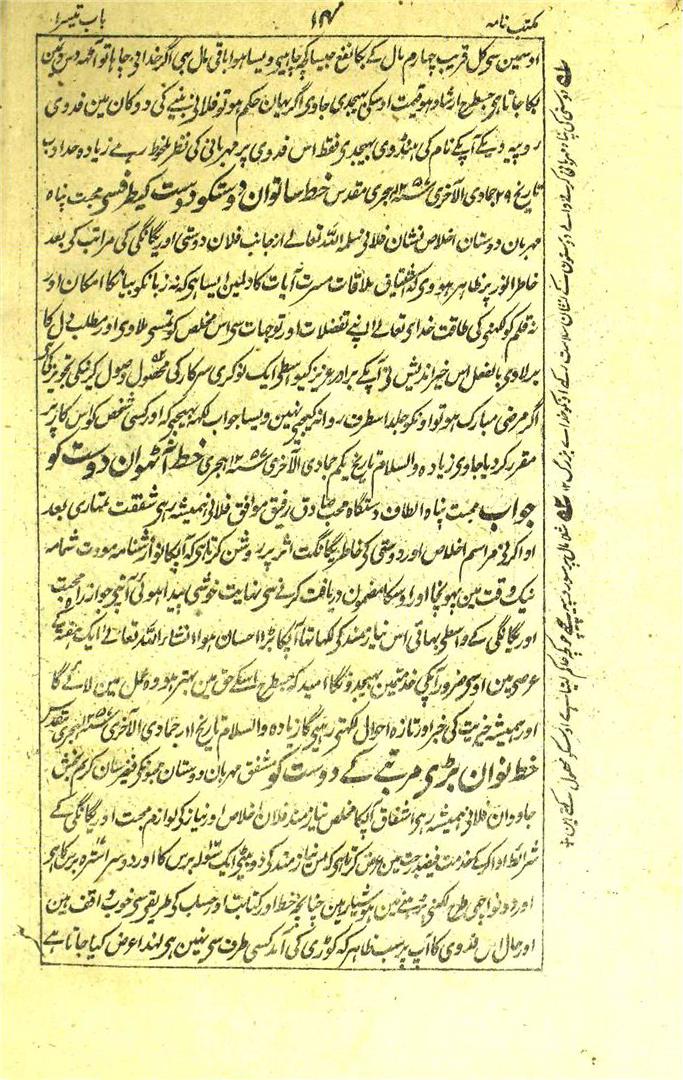 مکتب نامہ
۱۴
باب تیسرا
اوسمین سی کل قریب چہارم مال کے بکا نفع جیسا کہ چاہیی ویسا ہوا باقی مال بہی اگر خدا نی چاہا تو آٹہہ دس دنمین
بکا جاتا ہی جسطرح ارشاد ہو قیمت اوسکی بہیجدی جاوی اگر یہان حکم ہو تو فلانی بنیئے کی دوکان مین فدوی
روپیہ دیکے آپکے نام کی ہنڈوی بہیجدی فقط اس فدوی پر مہربانی کی نظر ملحوظ رہے زیادہ حد ادب
تاریخ ۲۹ جمادی الآخری سنہ ۱۲۵۷ ہجری مقدس خط ساتوان دوستکو دوست کیطرفسی محبت پناہ
مہربان دوستان اخلاص نشان فلانی سلمہ اللہ تعالے از جانب فلان دوستی اور یگانگی کی مراتب کو بعد
خاطر انور پر ظاہر ہووی کہ اشتیاق ملاقات مسرت آیات کا دلمین ایسا ہی کہ نہ زبانکو بیانکا امکان اور
نہ قلم کو لکہنی کی طاقت خدای تعالے اپنے تفضلات اور توجہات سی اس مخلص کو تمسی ملاوی اور مطلب دل کا
برلاوی بالفعل اس خیراندیش نی آپکے برادر عزیز کیواسطی ایک نوکری سرکار کی محصول وصول کرنیکی تجویز کی
اگر مرضی مبارک ہو تو اونکو جلد اسطرف روانہ کیجی نہین ویسا جواب لکہہ بہیجی کہ اور کسی شخص کو اس کام پر
مقرر کردیا جاوی زیادہ والسلام تاریخ یکم جمادی الآخری سنہ ۱۲۵۷ ہجری خط آٹہوان دوست کو
جواب محبت پناہ الطاف دستگاہ محب صادق رفیق موافق فلانی ہمیشہ رہی شفقت تمہاری بعد
ادا کرنی مراسم اخلاص اور دوستی کی خاطر یگانگت اثر پر روشن کرتا ہی کہ آپکا نوازشنامہ مودت شمامہ
نیک وقت مین پہونچا اور اوسکا مضمون دریافت کرنے سی نہایت خوشی پیدا ہوئی آپنی جو از راہ محبت
اور یگانگی کے واسطی بہائی اس نیازمند کی لکہا تہا آپکا بڑا احسان ہوا انشاء اللہ تعالے ایک ہفتہ کے
عرصی مین اوسی ضرور آپکی خدمتمین بہیجدونگا امید کہ جسطرح اسکے حق مین بہتر ہو وہ عمل مین لائے گا
اور ہمیشہ خیریت کی خبر اور تازہ احوال لکہتی رہیی گا زیادہ والسلام تاریخ جمادی الآخری سنہ ۱۲۵۷ ہجری مقدس
خط نوان بڑی مرتبے کے دوست کو مشفق مہربان دوستان کرم بخش
جاودان فلانی ہمیشہ رہی اشفاق آپکا مخلص نیازمند فلان اخلاص اور نیاز کی لوازم محبت اور یگانگی کے
شرائط ادا کرکے خدمت فیضدرجت مین عرض کرتا ہی کہ اس نیازمند کی دو بیٹی ایک سولہ برس کا اور دوسرا اٹہارہ برس کا ہی
اور دونو اچہی طرح لکہنی پڑہنے مین ہوشیار ہین چنانچہ خط اور کتابت اور حساب کی طریقے سی خوب واقف ہین
اور حال اس فدوی کا آپ پر سب ظاہر کہ کوڑی کی آمد کسی طرف سی نہین ہی لہذا عرض کیا جاتا ہے